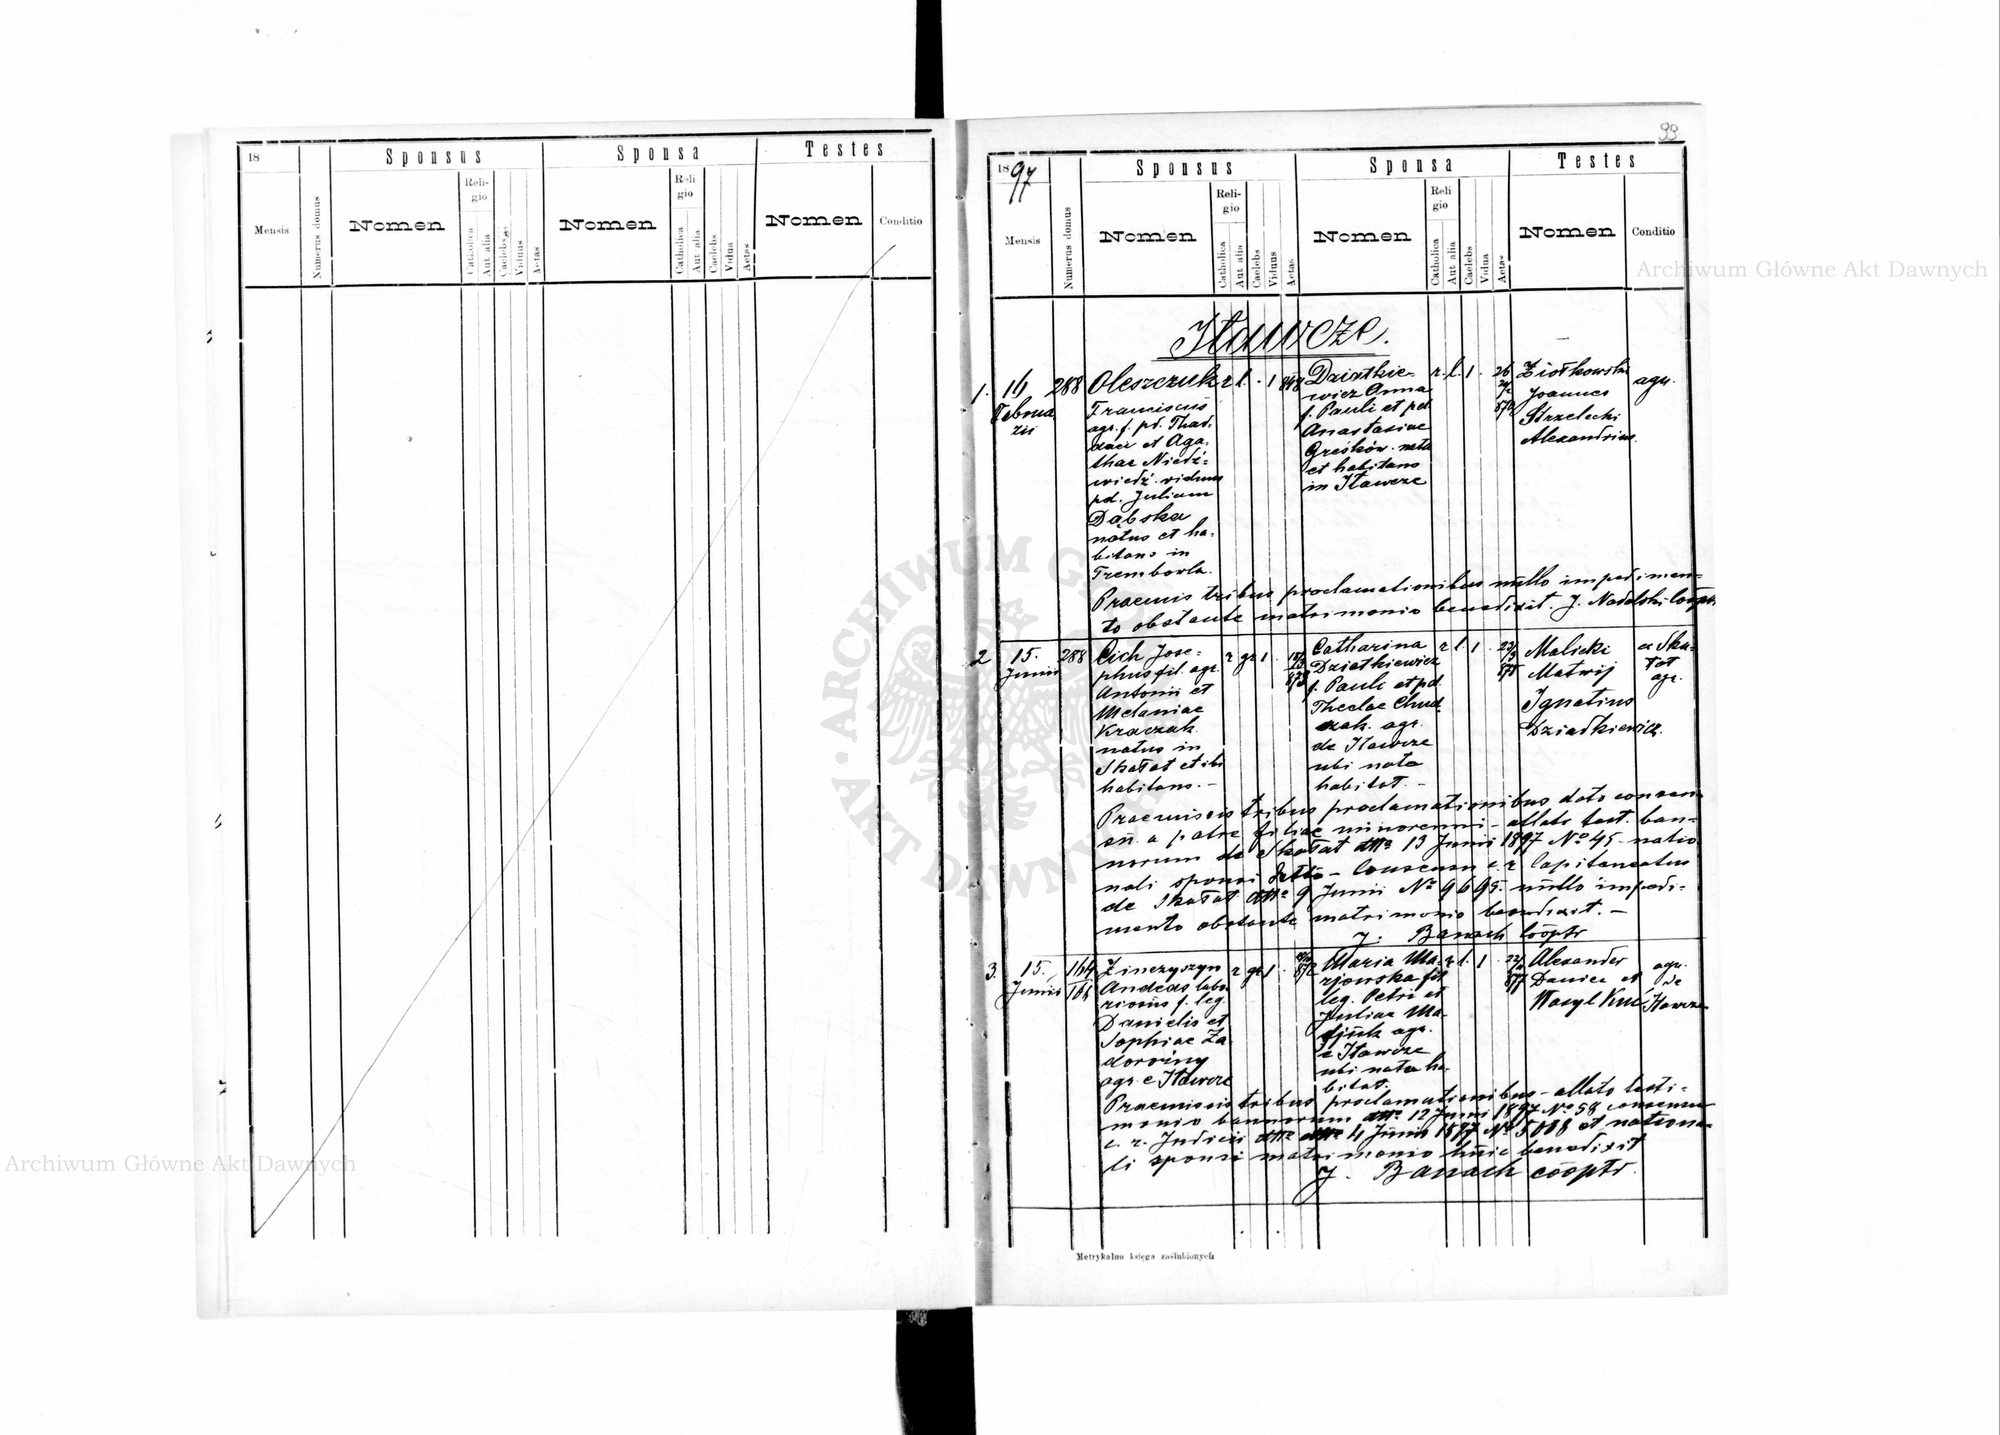 99
18
Sponsus
Sponsa
Testes
Mensis
Numerus domus
Nomen
Religio
Catholica
Aut alia
Caelebs
Viduus
Aetas
Nomen
Religio
Catholica
Aut alia
Caelebs
Vidua
Aetas
Nomen
Conditio
1897
Sponsus
Sponsa
Testes
Mensis
Numerus domus
Nomen
Religio
Catholica
Aut alia
Caelebs
Viduus
Aetas
Nomen
Religio
Catholica
Aut alia
Caelebs
Vidua
Aetas
Nomen
Conditio
Archiwum Główne Akt Dawnych
Iławcze.
1.
16
Februa
rii
288
Oleszczuk
Franciscus
agr. f. pd. Thad
daei et Aga-
thae Niedź-
wiedź viduus
pd. Juliam
Dąbska
natus et ha-
bitans in
Trembowla.
r. l. . 1 848
Dziatkie-
wicz Anna
f. Pauli et pd.
Anastasiae
Greśków. nata
et habitans
in Iławcze
r. l. 1.
26
Ziółkowski
Joannes
Strzelecki
Alexandrius.
agr.
Praemis tribus proclamationibus nullo impedimen-
to obstante matrimonio benedixit. J. Nadolski Cooptr.
2
15.
Junii
288
Cich Jose-
phus fil. agr.
Antonii et
Melaniae
Kraczak
natus in
Skałat et ibi
habitans. -
r gr 1 .
873
Catharina
Dziatkiewicz
f. Pauli et pd.
Theclae Chud
czak. agr.
de Iławcze
ubi nata
habitat. -
r l. 1 .
875
Malicki
Matwij
Ignatius
Dziadkiewicz.
a Ska-
łat
agr.
Praemissis tribus proclamationibus dato consen-
su a patre filiae minorenni - allato test. ban-
norum de Skałat dtto 13 Junii 1897 No 45 - natio
nali sponsi dtto - Consensu c. r. Capitaneatus
de Skałat dtto 9 Junii No 9695. nullo impedi-
mento obstante matrimonio benedixit. -
J. Banach cooptr
3.
15.
Junii
164
166
Zinczyszyn
Andreas labo
riosus f. leg.
Danielis et
Sophiae Za
dorożny
agr. e Iławcze
r gr 1 .
872
Maria Ma-
zjowska fil
leg. Petri et
Juliae Ma-
djuk agr.
e Iławcze
ubi nata ha-
bitat.
r. l. 1 .
877
Alexander
Daniec et
Wasyl Kuc
agr.
de
Iławcze
Praemissis tribus proclamationibus - allato testi-
monio bannorum dtto 12 Junii 1897 No 58 consensu
c. r. Judicii dtto 4 Junii 1897 No 5008 et nationa-
li sponsi matrimonio huic benedixit
J. Banach cooptr.
Metrykalna księga zaślubionych
ARCHIWUM GŁÓWNE AKT DAWNYCH
Archiwum Główne Akt Dawnych